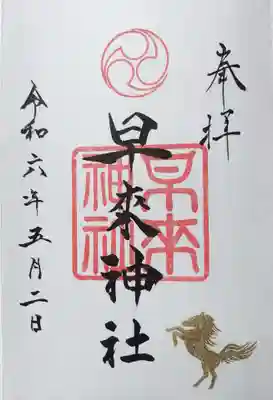 奉拝
早來神社
早来神社
令和六年五月二日